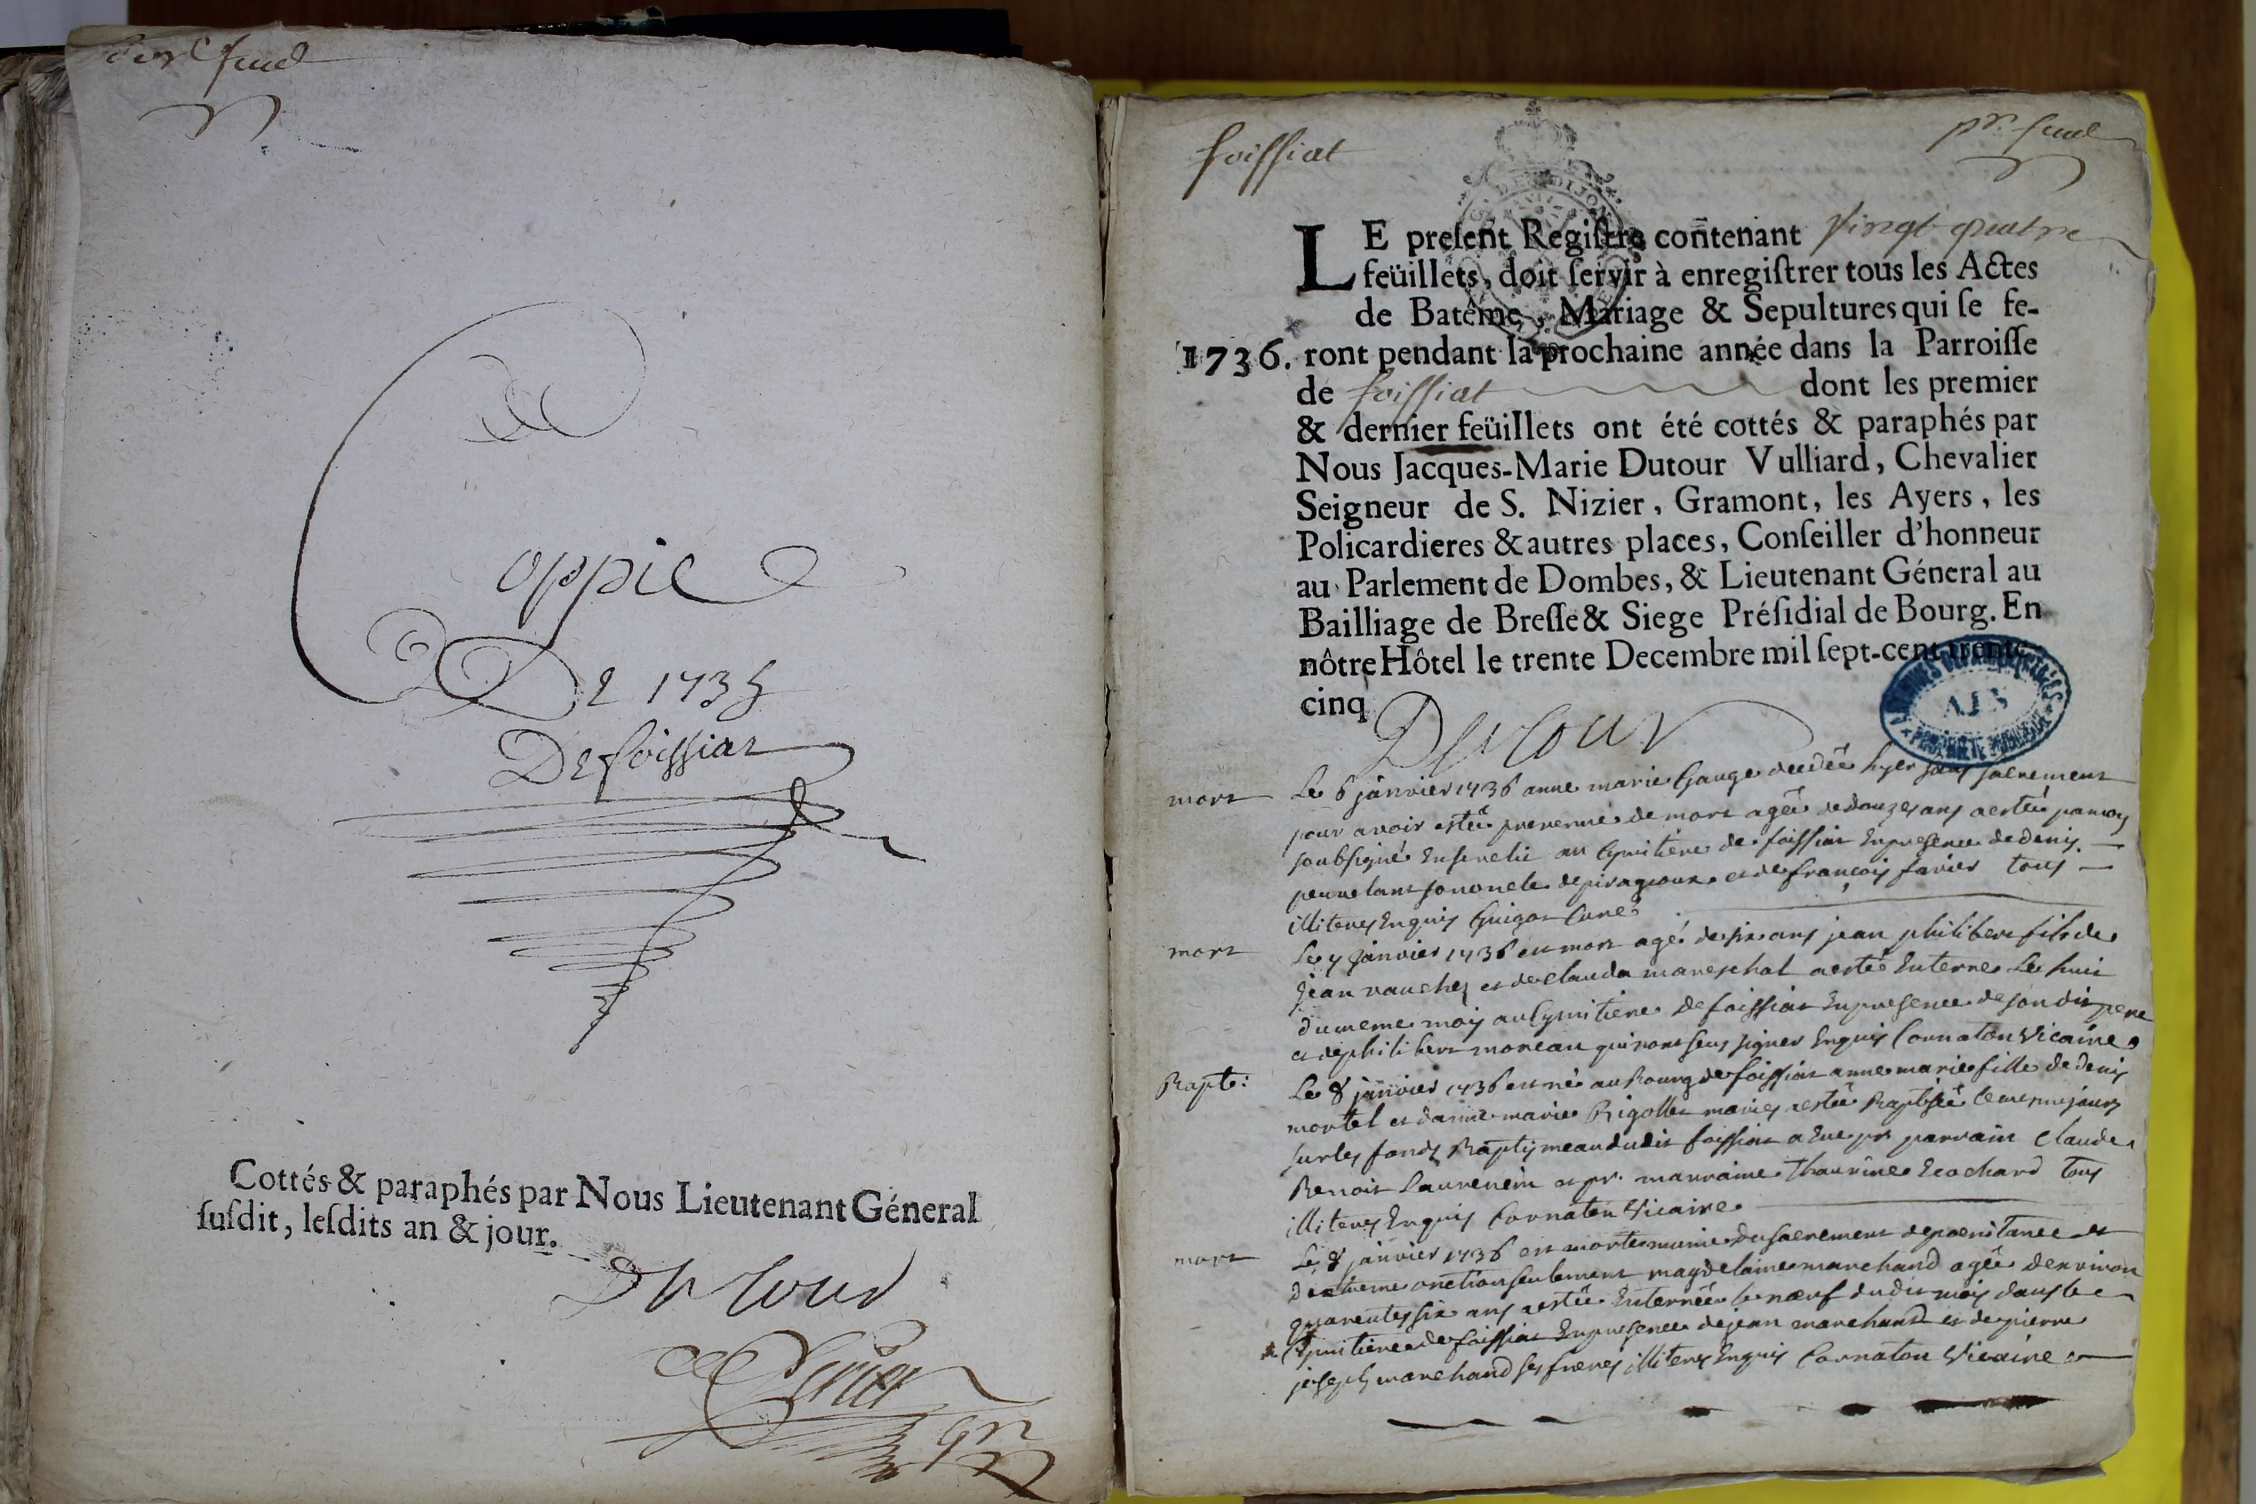 der feuil
Coppie
De 1735
De foissiat
Cottés & paraphés par Nous Lieutenant Géneral
ſuſdit, leſdits an & jour.
Dutour
foissiat
pr. feuil
LE preſent Regiſtre contenant vingt quatre
feüillets, doit ſervir à enregiſtrer tous les Actes
de Batême, Mariage & Sepultures qui ſe fe-
1736. ront pendant la prochaine année dans la Parroiſſe
de foissiat dont les premier
& dernier feüillets ont été cottés & paraphés par
Nous Jacques-Marie Dutour Vulliard, Chevalier
Seigneur de S. Nizier, Gramont, les Ayers, les
Policardieres & autres places, Conſeiller d'honneur
au Parlement de Dombes, & Lieutenant Géneral au
Bailliage de Breſſe & Siege Préſidial de Bourg. En
nôtre Hôtel le trente Decembre mil ſept-cent trente-
cinq
Dutour
mort Le 6 janvier 1736 anne marie Gauge decedée hyer sans sacrement
pour avoir estée prevenue de mort agée de douzes ans aestée par moy
soubsigné Enseveli au Cymitiere de foissiat Enpresence de denis
son oncle de et de françois favier tous
illiteres Enquis Guigot Curé
mort Le 7 janvier 1736 est mort agé de six ans jean philibert fils de
jean vauchez et de clauda mareschal aesté Enterré Le huit
du meme mois au Cymitiere de foissiat Enpresence de son dit pere
et de philibert moreau qui nont sceus signer Enquis Cornaton Vicaire
Bapte: Le 8 janvier 1736 est né au Bourg de foissiat anne marie fille de denis
mortel et danne marie Rigollet mariés aestée Baptisée le mesme jours
sur les fonds Baptismeau dudit foissiat a Eue pr. parrain Claude
Benoit Laurencin et pr. marraine Thaurine Ecochard tous
illiteres Enquis Cornaton Vicaire
mort Le 8 janvier 1736 est morte munie du sacrement de poenitance et
dextreme onction seulement magdelaine marchand agée denviron
quarentes six ans aestée Enterrée le nœuf dudit mois dans le
Cymitiere de foissiat Enpresence de jean marchand et de pierre
joseph marchand ses freres illiteres Enquis Cornaton Vicaire